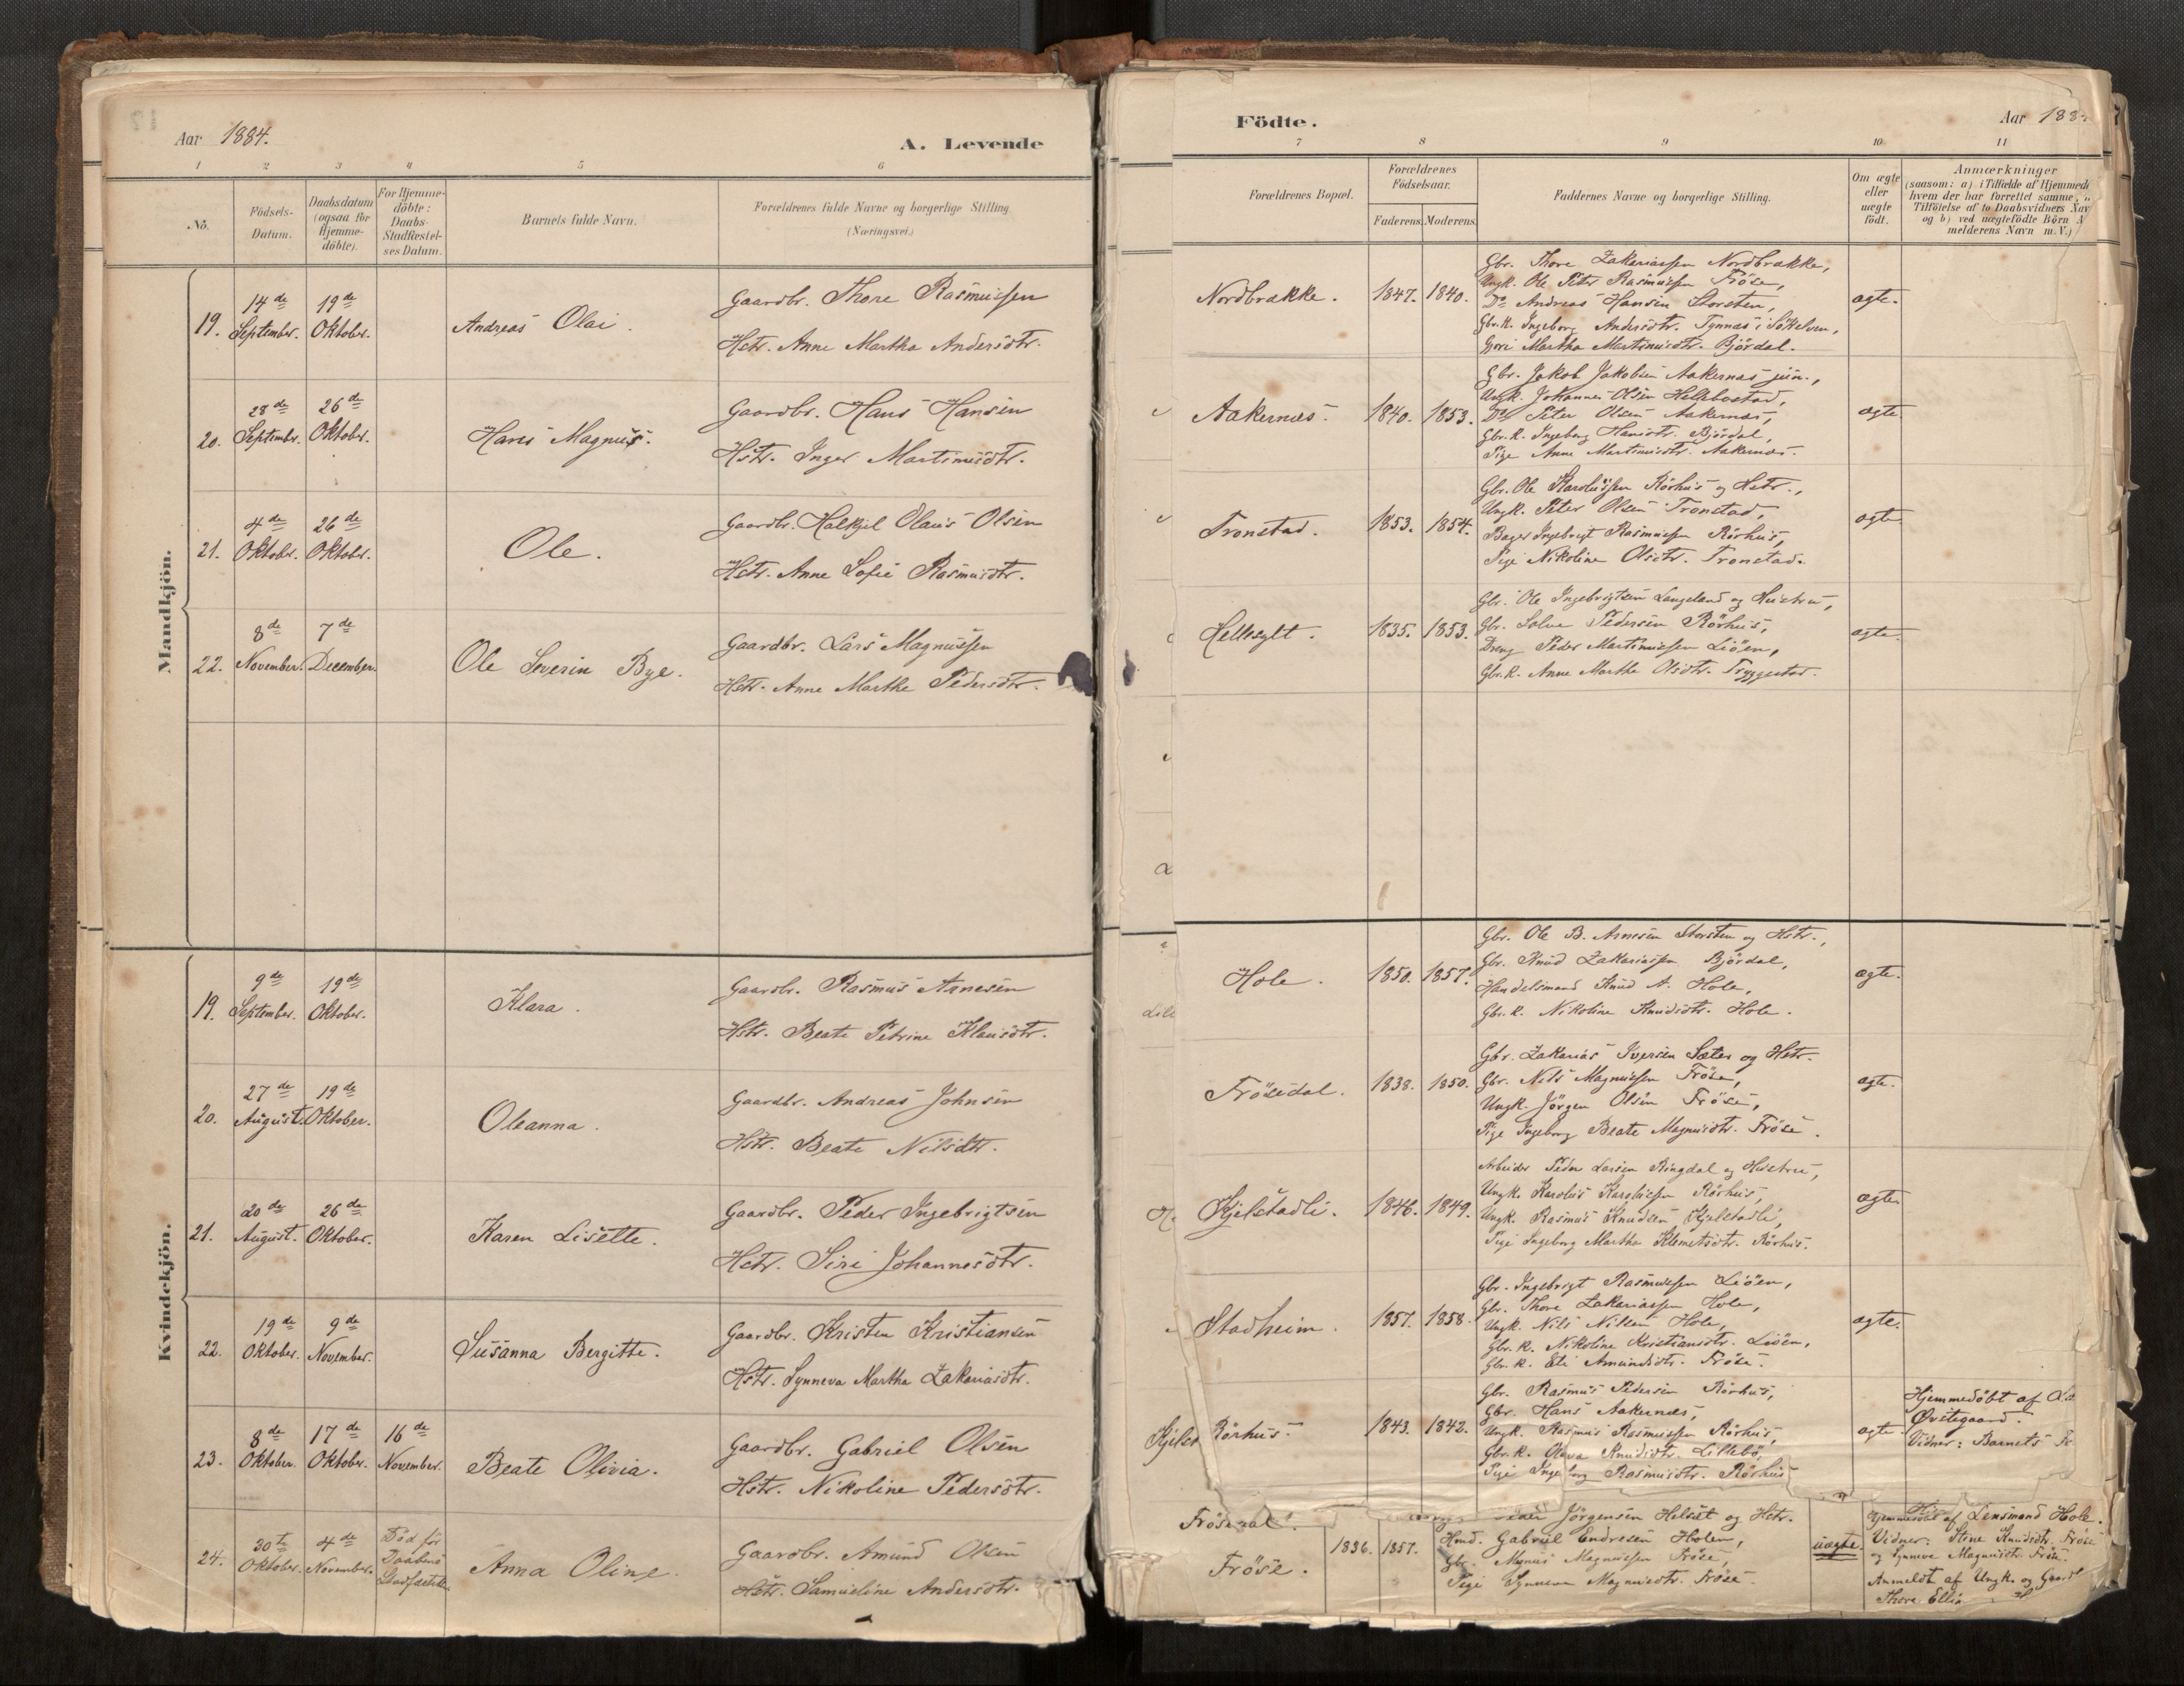 Aar 1884.
A. Levende
1 2 3 4 5 6
No.
Födsels-
Datum.
Daabsdatum
(ogsaa for
Hjemme-
döbte).
For Hjemme-
döbte:
Daabs-
Stadfæstel-
ses Datum.
Barnets fulde Navn.
Forældrenes fulde Navne og borgerlige Stilling.
(Næringsvei.)
Mandkjön.
19.
14de
September.
19de
Oktober.
Andreas Olai.
Gaardbr. Thore Rasmussen
Hstr. Anne Martha Andersdtr.
20.
28de
Septembr.
26de
Oktober.
Hans Magnus.
Gaardbr. Hans Hansen
Hstr. Inger Martinusdtr.
21.
4de
Oktober.
26de
Oktober.
Ole.
Gaardbr. Halkjel Olaus Olsen
Hstr. Anne Sofie Rasmusdtr.
22.
8de
November.
7de
December.
Ole Severin Bye.
Gaardbr. Lars Magnussen
Hstr. Anne Marthe Pedersdtr.
Kvindekjön.
19.
9de
September.
19de
Oktober.
Klara.
Gaardbr. Rasmus Arnesen
Hstr. Beate Petrine Klausdtr.
20.
27de
August.
19de
Oktober.
Oleanna.
Gaardbr. Andreas Johnsen
Hstr. Beate Nilsdtr.
21.
20de
August.
26de
Oktober.
Karen Lisette.
Gaardbr. Peder Ingebrigtsen
Hstr. Siri Johannesdtr.
22.
19de
Oktober.
9de
November.
Susanna Bergitte.
Gaardbr. Kristen Kristiansen
Hstr. Synneva Martha Zakariasdtr.
23.
8de
Oktober.
17de
Oktober.
16de
November.
Beate Olivia.
Gaardbr. Gabriel Olsen
Hstr. Nikoline Pedersdtr.
24.
30te
Oktober.
4de
November.
Död før
Daabens
Stadfæstelse
Anna Oline.
Gaardbr. Amund Olsen
Hstr. Samueline Andersdtr.
Födte.
Aar 188
7 8 9 10 11
Forældrenes Bopæl.
Forældrenes
Födselsaar.
Faderens. Moderens.
Faddernes Navne og borgerlige Stilling.
Om ægte
eller
uægte
födt.
Anmærkninger
(saasom: a) i Tilfælde af Hjemmed
hvem der har forrettet samme,
Tilföielse af to Daabsvidners Nav
og b) ved uægtefödte Börn A
melderens Navn m. V.)
Nordbrakke.
1847. 1840.
Gbr. Thore Zakariassen Nordbrakke,
Ungk. Ole Peter Rasmussen Fröse,
Do Andreas Hansen Storsten,
Gbr.k. Ingeborg Andersdtr. Tynnæs i Sökelven,
Martha Martinusdtr. Björdal.
ægte.
Aakernæs.
1840. 1853.
Gbr. Jakob Jakobsen Aakernæs jun.,
Ungk. Johannes Olsen Hellebostad,
Do Peter Olsen Aakernæs,
Gbr.k. Ingeborg Hansdtr. Björdal,
Pige Anne Martinusdtr. Aakernæs.
ægte
Tronstad.
1853. 1854.
Gbr. Ole Karolussen Rörhus og Hstr.,
Ungk. Peter Olsen Tronstad,
Bager Ingebrigt Rasmussen Rörhus,
Pige Nikoline Olsdtr. Tronstad.
ægte
Hellesylt.
1835. 1853.
Gbr. Ole Ingebrigtsen Langeland og Hustru,
Gbr. Salve Pedersen Rörhus,
Dreng Peder Martinussen Liöen,
Gbr.k. Anne Marthe Olsdtr. Tryggestad.
ægte.
Hole.
1850. 1857.
Gbr. Ole B. Arnesen Storsten og Hstr.,
Gbr. Knud Zakariassen Björdal,
Handelsmand Knud A. Hole,
Gbr.k. Nikoline Knudsdtr. Hole.
ægte.
Frösedal.
1838. 1850.
Gbr. Zakarias Iversen Sæter og Hstr.
Gbr. Nils Magnussen Fröse,
Ungk. Jörgen Olsen Fröse,
Pige Ingeborg Beate Magnusdtr. Fröse.
ægte.
Kjelstadli.
1846. 1849.
Arbeider Peder Larsen Ringdal og Hustru,
Ungk. Karolus Karolussen Rörhus,
Ungk. Rasmus Knudsen Kjelstadli,
Pige Ingeborg Martha Klemetsdtr. Rörhus.
ægte
Stadheim.
1857. 1858.
Gbr. Ingebrigt Rasmussen Liöen,
Gbr. Thore Zakariassen Hole,
Ungk. Nils Nilsen Hole,
Gbr.k. Nikoline Kristiansdtr. Liöen,
Gbr.k. Eli Amundsdtr. Fröse.
ægte.
Kjelst
Rörhus.
1843. 1842.
Gbr. Rasmus Pedersen Rörhus,
Gbr. Hans Aakernæs,
Ungk. Rasmus Rasmussen Rörhus,
Gbr.k. Olava Knudsdtr. Lillebö,
Pige Ingeborg Rasmusdtr. Rörhus
ægte.
Hjemmedöbt af
Østegaard.
Vidner: Barnets
Fröse.
1836. 1857.
Jörgensen Helset og Hstr.
Hmd. Gabriel Endresen Holen,
Gbr. Magnussen Fröse,
Pige Synneva Magnusdtr. Fröse.
uægte
Hjemmedöbt af Lensmand Hole.
Vidner: Stine Knudsdtr. Fröse
og Synneve Magnusdtr. Fröse.
Anmeldt af Ungk. og Gaardb
Thore Ellia